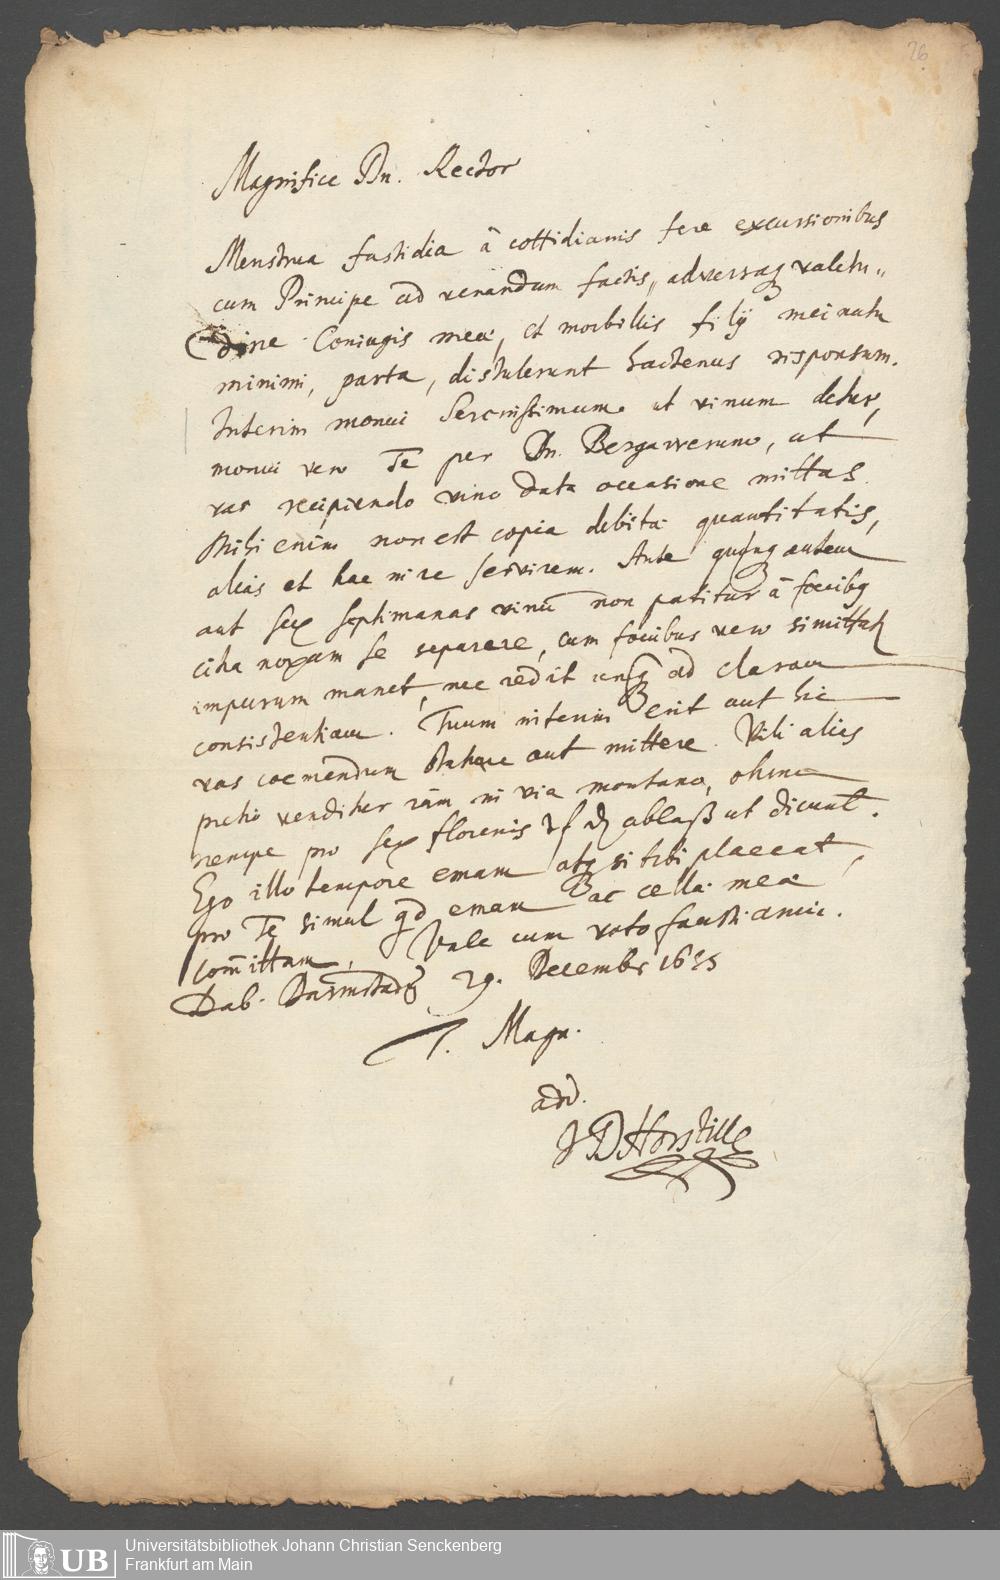 26
Magnifice Dn. Rector
Menstrua fastidia â cottidianis fere excursionibus
cum Principe ad venandum factis,, adversaq valetu,,
dine Coniugis meæ, et morbillis filÿ mei natu
minimi, parta, distulerunt hactenus responsum.
Interim monui Serenissimum ut vinum detur,
monui vero Te per Dn. Bergavverum, ut
vas recipiendo vino data occasione mittas.
Mihi enim non est copia debitæ quantitatis,
alias et hac in re servirem. Ante quinq autem
aut sex septimanas vinū non patitur â fæcibq
citra noxam se separare, cum fæcibus vero si mittat
impurum manet, nec redit unq ad claram
consistentiam. Tuum interim erit aut hic
vas coemendum aut mittere. Vili alias
pretio venditur iam in via montana, ohma
nempe pro sex florenis ablaß ut dicunt.
Ego illo tempore emam atq si tibi placeat,
pro Te simul qd emam ac cellæ meæ
com̄ittam. Vale cum voto fausti anni.
Dab. Darmstadÿ 29. Decembr 1655
T. Magn.
add.
J D Horstius
Universitätsbibliothek Johann Christian Senckenberg
Frankfurt am Main
UB